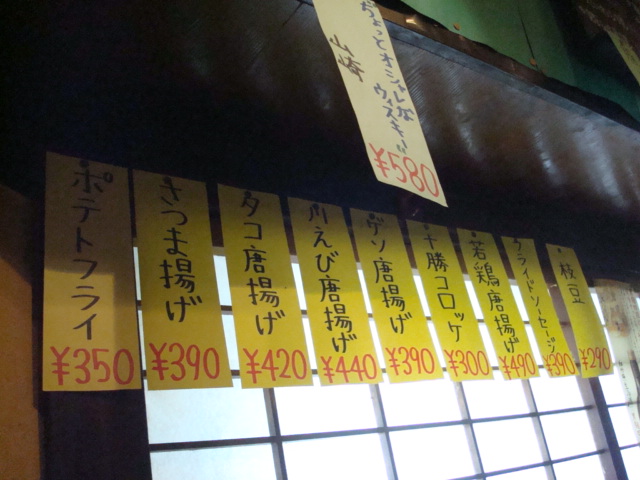 ちょっとオシャレな
ウィスキー!!
山崎
¥580
ポテトフライ
¥350
さつま揚げ
¥390
タコ唐揚げ
¥420
川えび唐揚げ
¥440
ゲソ唐揚げ
¥390
十勝コロッケ
¥300
若鶏唐揚げ
¥490
フライドソーセージ
¥390
枝豆
¥290